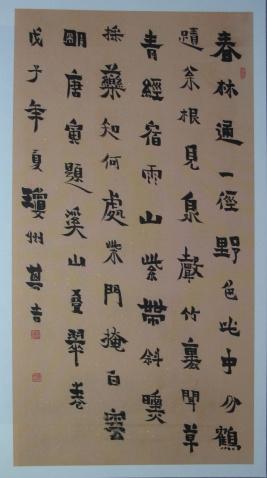 春林通一徑野色此中分鶴
蹟枀根見泉聲竹裏聞草
青經宿雨山紫帶斜曛
採藥知何處柴門掩白雲
朙唐寅題溪山疊翠卷
戊子年夏瓊州其吉